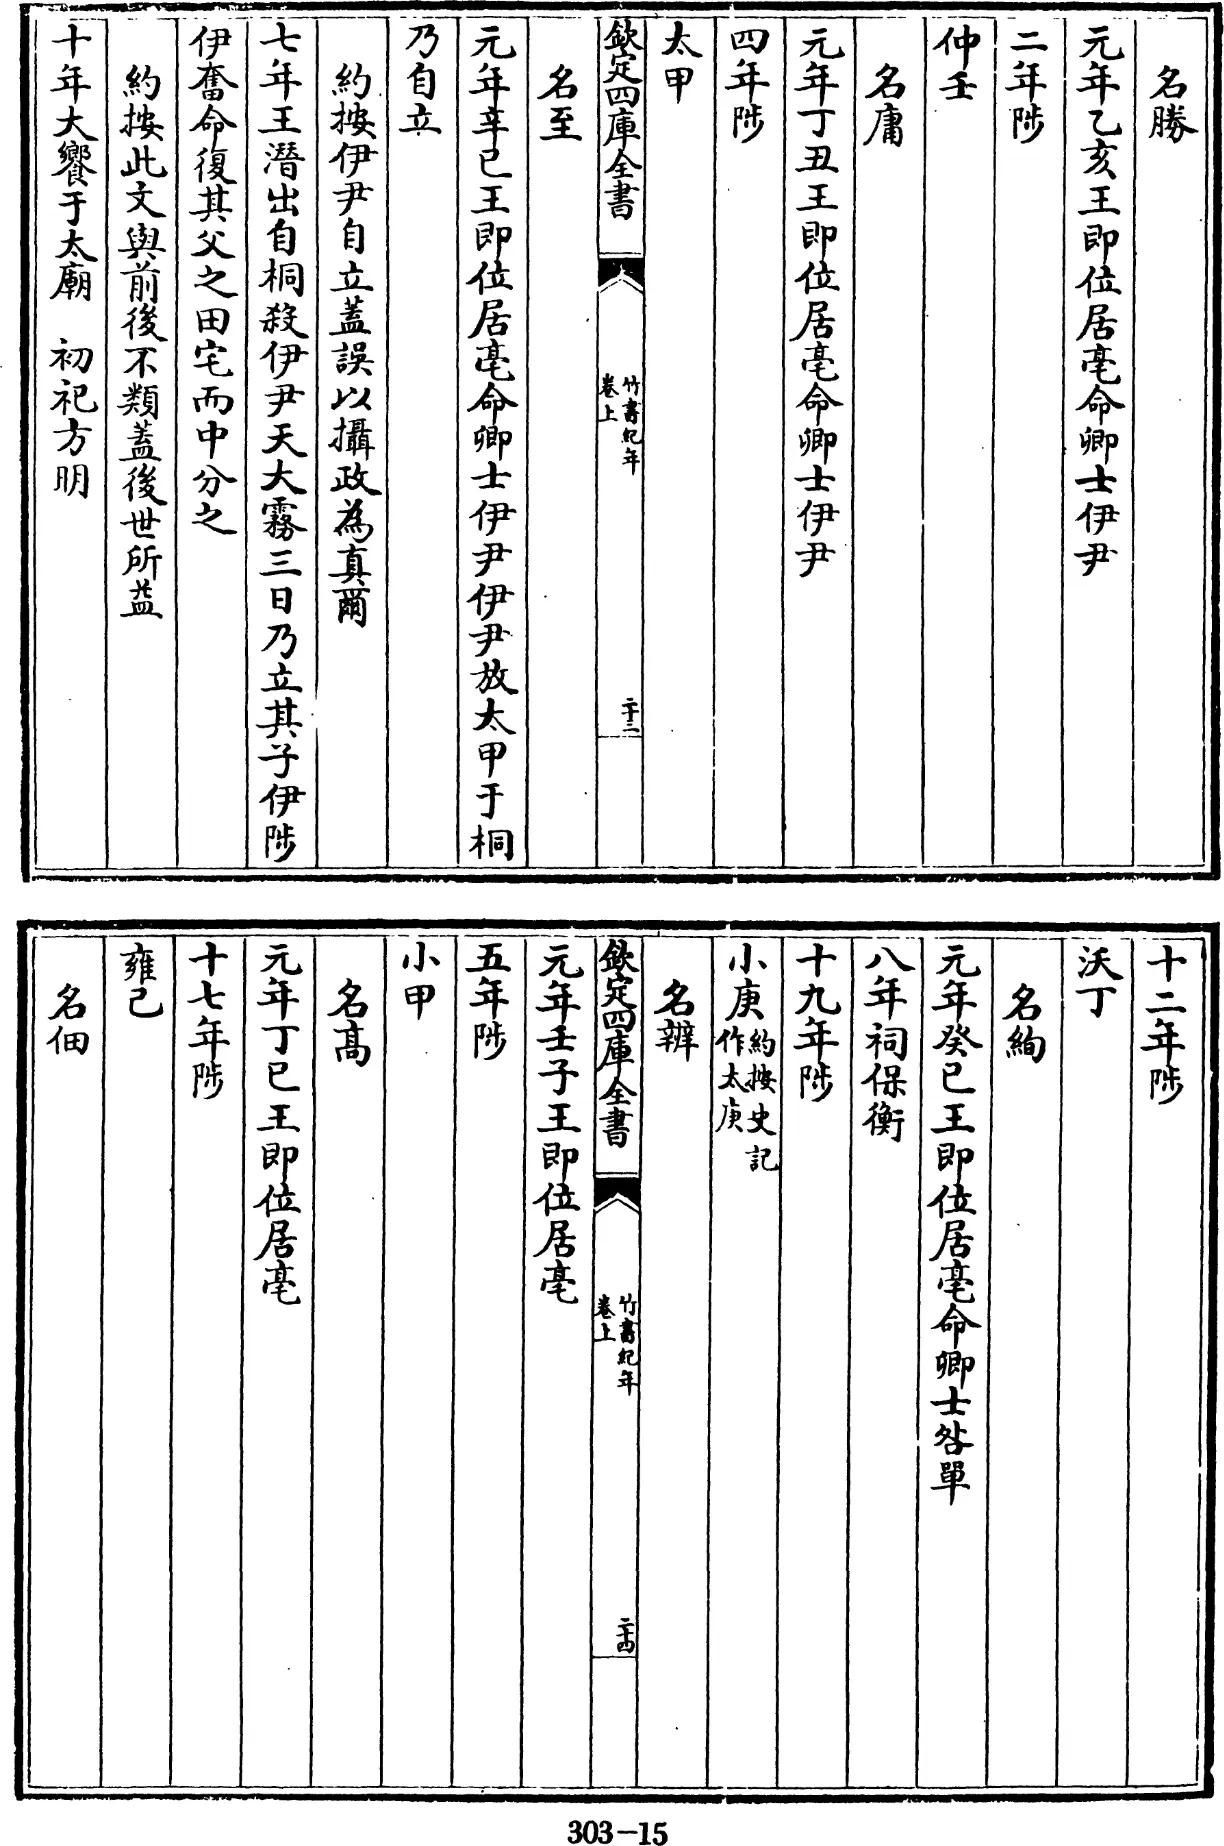 名勝
元年乙亥王即位居亳命卿士伊尹
二年陟
仲壬
名庸
元年丁丑王即位居亳命卿士伊尹
四年陟
太甲
欽定四庫全書
竹書紀年
卷上
二十三
名至
元年辛巳王即位居亳命卿士伊尹伊尹放太甲于桐
乃自立
約按伊尹自立蓋誤以攝政為真爾
七年王潛出自桐殺伊尹天大霧三日乃立其子伊陟
伊奮命復其父之田宅而中分之
約按此文與前後不類蓋後世所益
十年大饗于太廟 初祀方明
十二年陟
沃丁
名絢
元年癸巳王即位居亳命卿士咎單
八年祠保衡
十九年陟
小庚約按史記
作太庚
名辨
欽定四庫全書
竹書紀年
卷上
二十四
元年壬子王即位居亳
五年陟
小甲
名高
元年丁巳王即位居亳
十七年陟
雍己
名佃
303-15